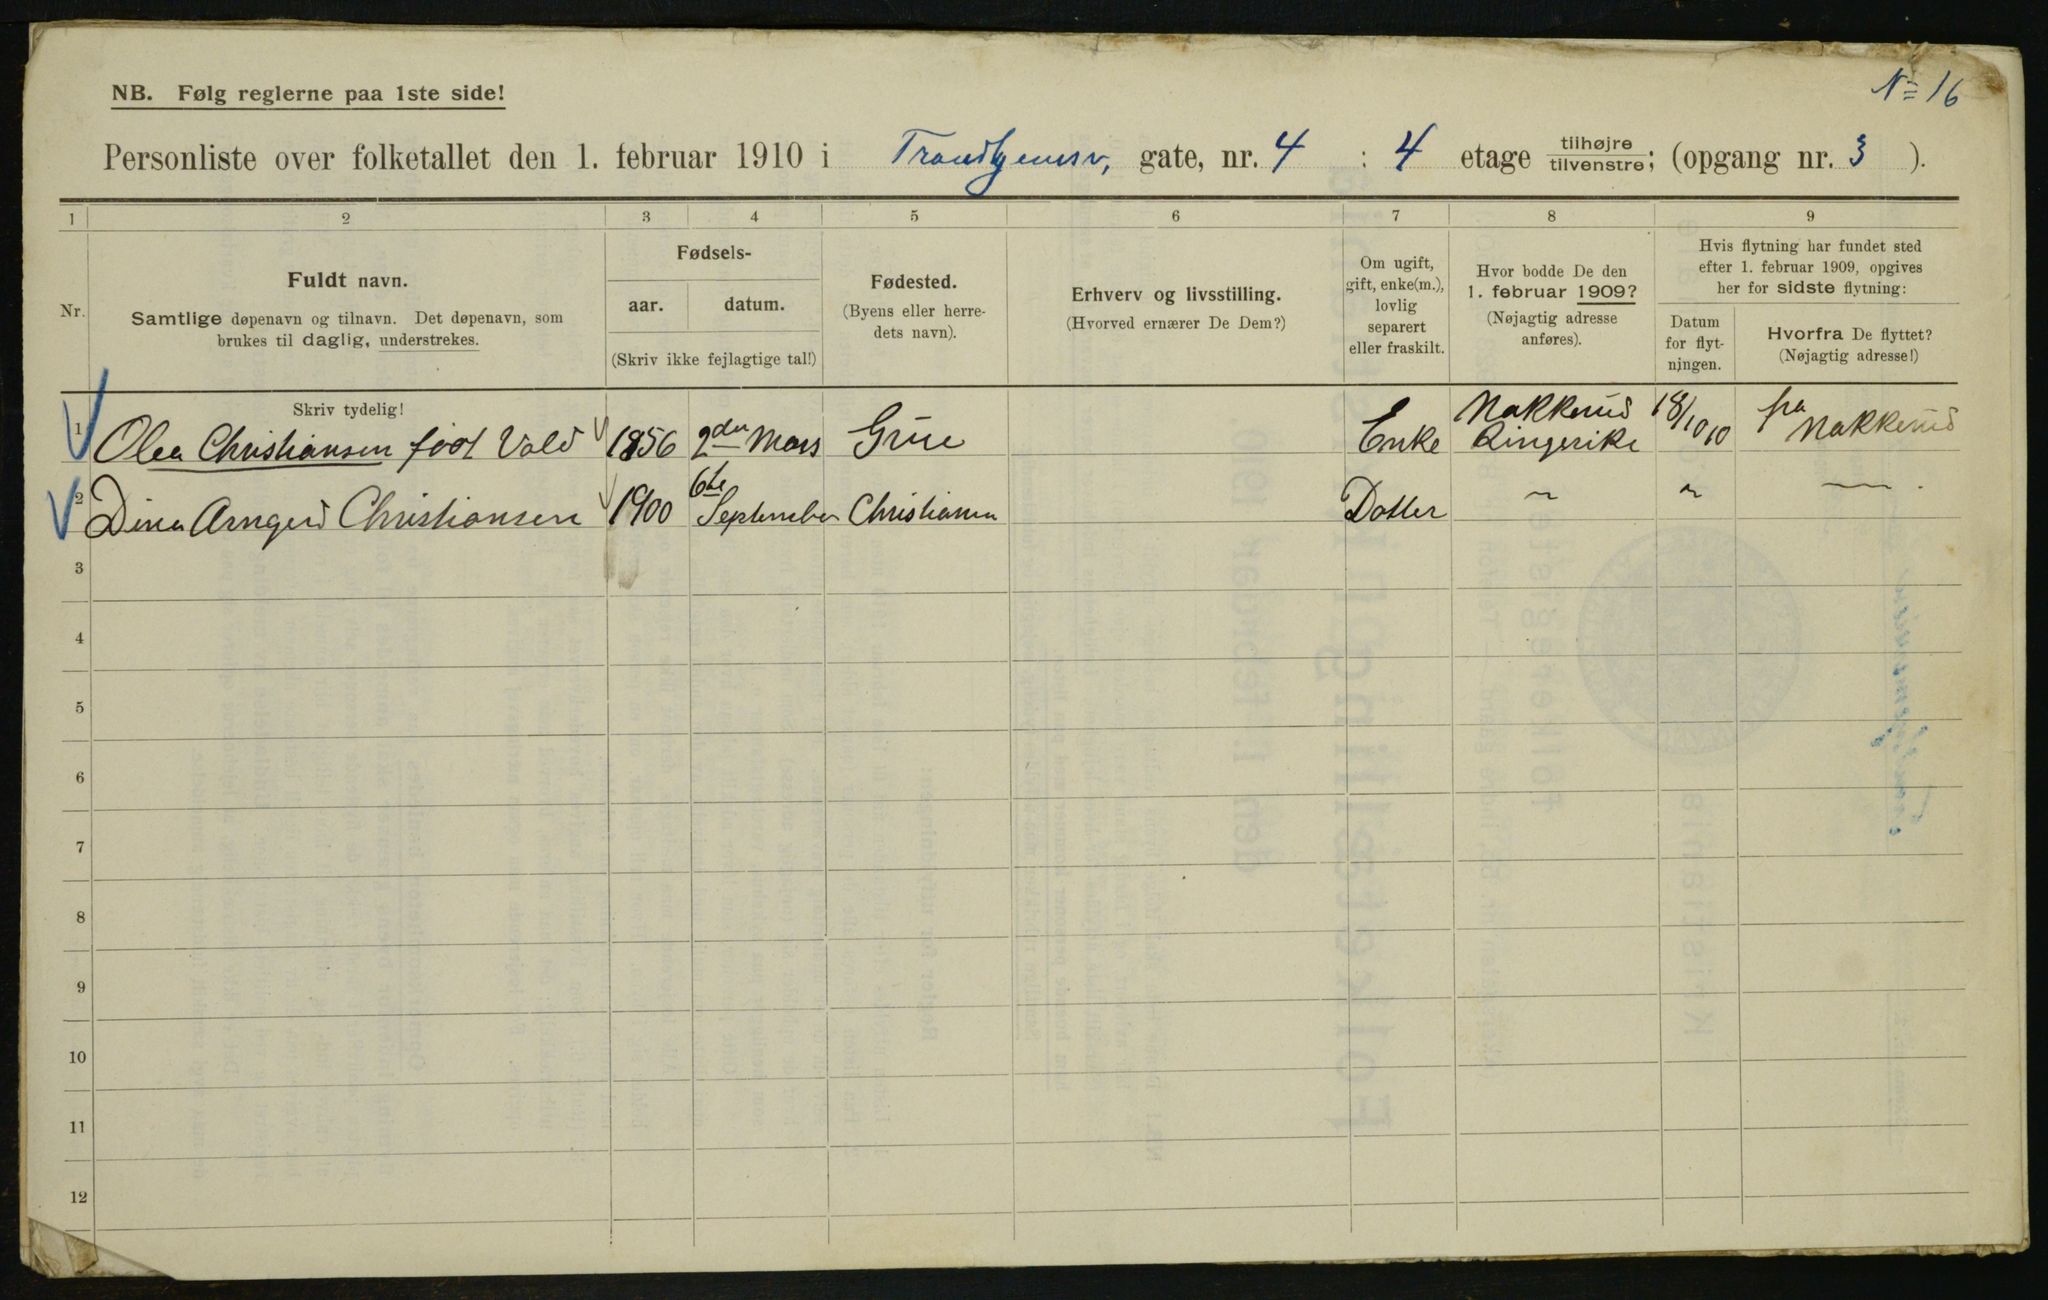 No 16
NB. Følg reglerne paa 1ste side!
Personliste over folketallet den 1. februar 1910 i Trondhjemsv, gate, nr. 4 : 4 etage tilhøjre tilvenstre; (opgang nr. 3 ).
1 2 3 4 5 6 7 8 9
Nr.
Fuldt navn.
Samtlige døpenavn og tilnavn. Det døpenavn, som
brukes til daglig, understrekes.
Skriv tydelig!
Fødsels-
aar. datum.
(Skriv ikke fejlagtige tal!)
Fødested.
(Byens eller herre-
dets navn).
Erhverv og livsstilling.
(Hvorved ernærer De Dem?)
Om ugift,
gift, enke(m.),
lovlig
separert
eller fraskilt.
Hvor bodde De den
1. februar 1909?
(Nøjagtig adresse
anføres).
Hvis flytning har fundet sted
efter 1. februar 1909, opgives
her for sidste flytning:
Datum
for flyt-
ningen.
Hvorfra De flyttet?
(Nøjagtig adresse!)
1 Olea Christiansen født Vold 1856 2den Mars Grue Enke Nakkerud Ringerike 18/10 10 fra Nakkerud
2 Dina Arngerd Christiansen 1900 6te September Christiania Dotter " " —
3
4
5
6
7
8
9
10
11
12